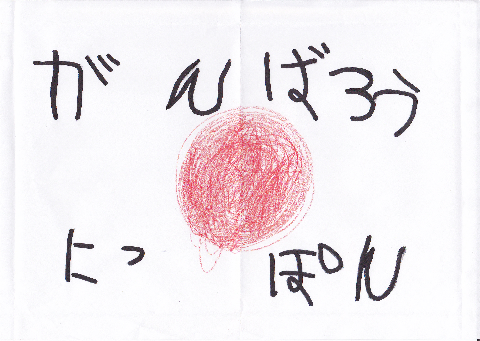 がんばろう
にっぽん